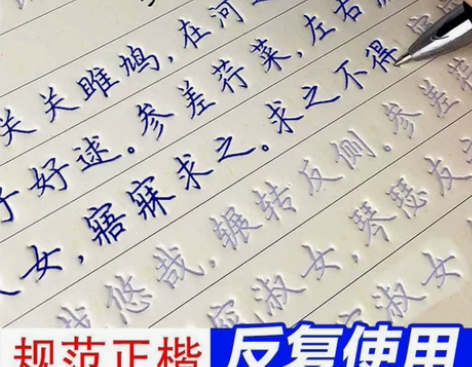 关关雎鸠,在河
子好逑。参差荇菜,左右
女,寤寐求之。求之不得
哉悠哉,辗转反侧。参差荇
窕淑女,琴瑟友
淑女
规范正楷 反复使用